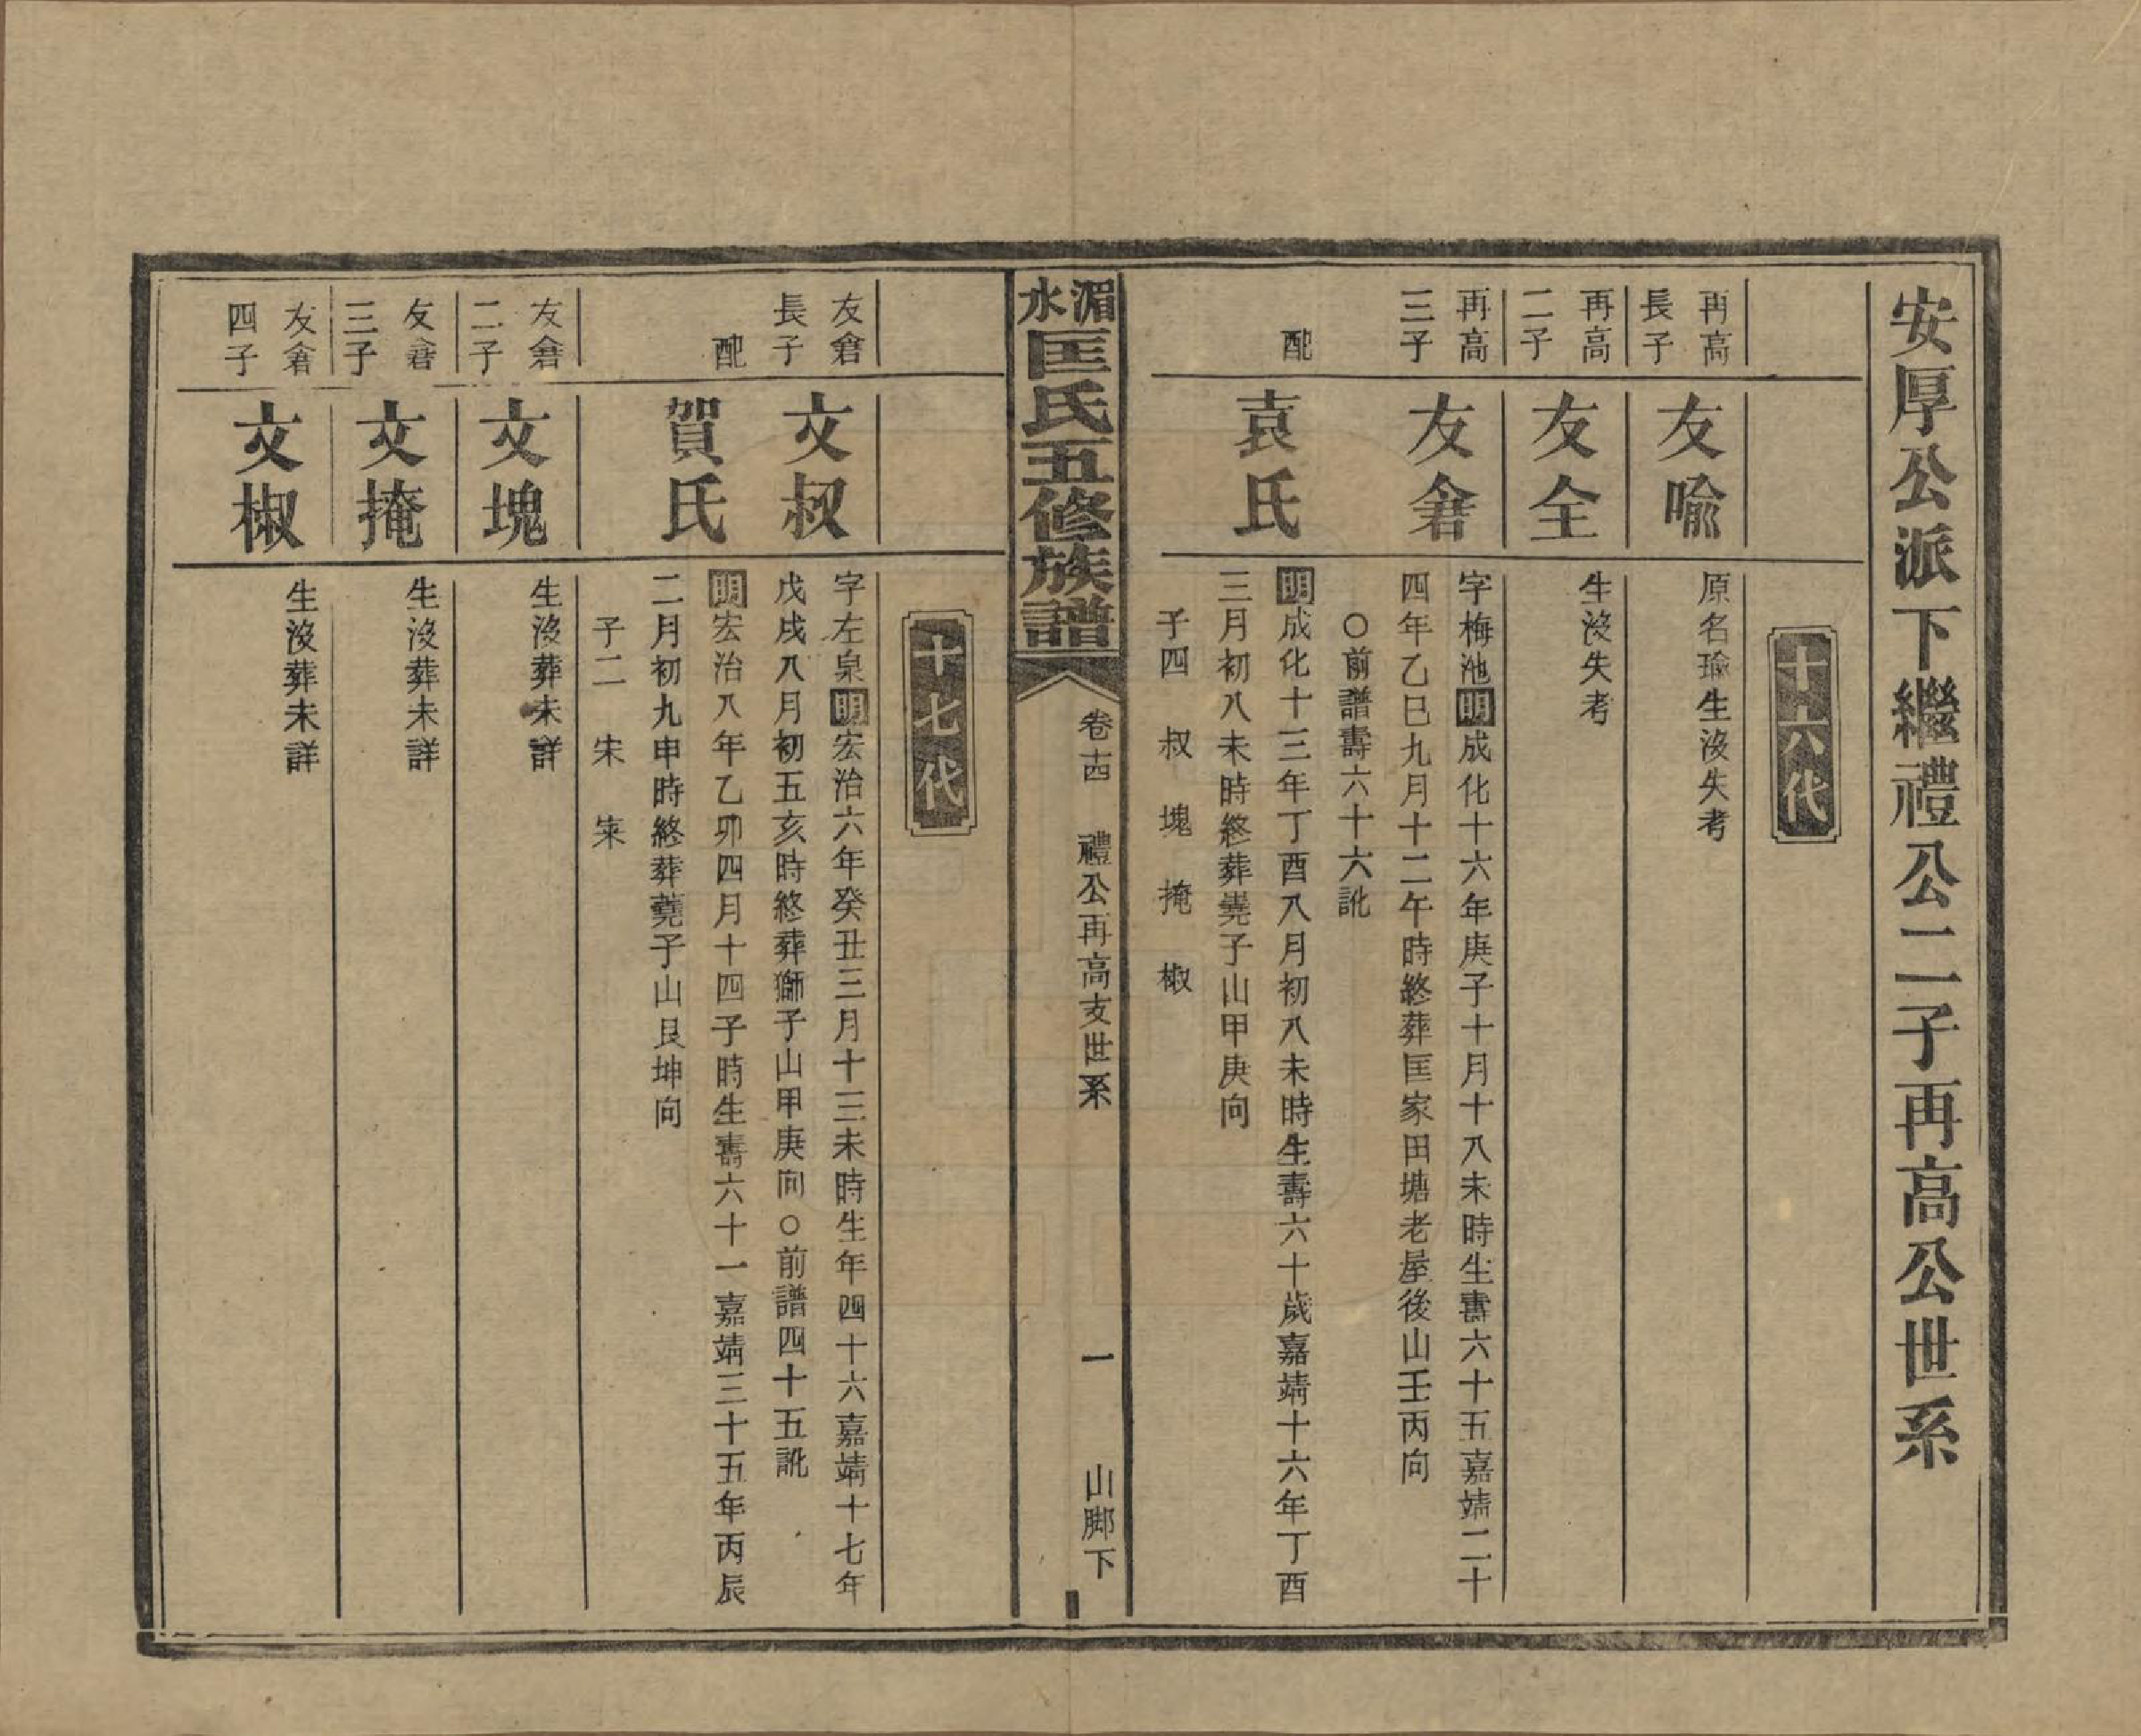 安厚公派下繼禮公二子再高公世系
十六代
再高
長子
友喻
原名瑜生没失考
再高
二子
友全
生没失考
再高
三子
友畣
字梅池明成化十六年庚子十月十八未時生壽六十五嘉靖二十
四年乙巳九月十二午時終葬匡家田塘老屋後山壬丙向
○前譜壽六十六訛
配
袁氏
明成化十三年丁酉八月初八未時生壽六十歲嘉靖十六年丁酉
三月初八未時終葬蕘子山甲庚向
子四 叔 塊 掩 椒
湄水匡氏五修族譜
卷十四 禮公再高支世系 一 山脚下
十七代
友畣
長子
文叔
字左泉明宏治六年癸丑三月十三未時生年四十六嘉靖十七年
戊戌八月初五亥時終葬獅子山甲庚向○前譜四十五訛
配
賀氏
明宏治八年乙卯四月十四子時生壽六十一嘉靖三十五年丙辰
二月初九申時終葬蕘子山艮坤向
子二 宋 寀
友畣
二子
文塊
生没葬未詳
友畣
三子
文掩
生没葬未詳
友畣
四子
文椒
生没葬未詳